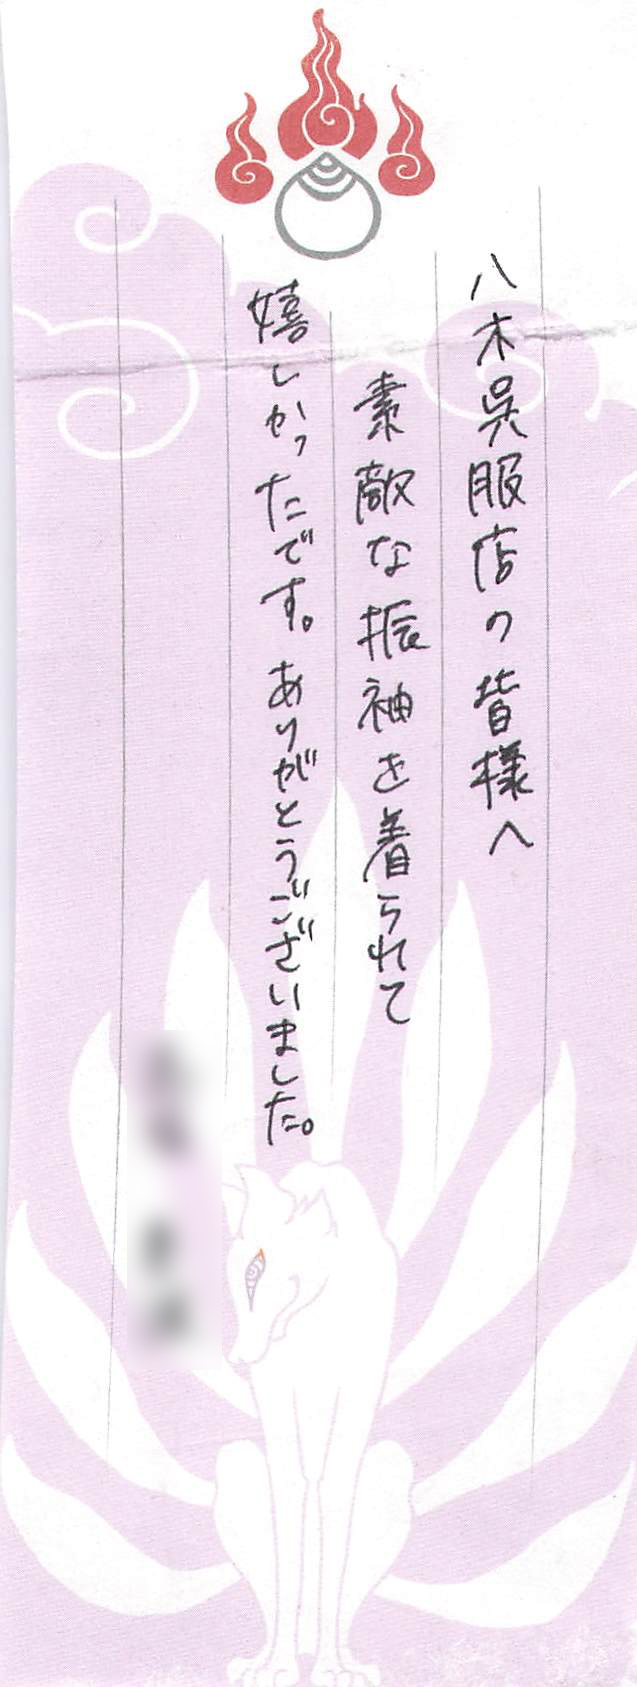 八木呉服店の皆様へ
素敵な振袖を着られて
嬉しかったです。ありがとうございました。